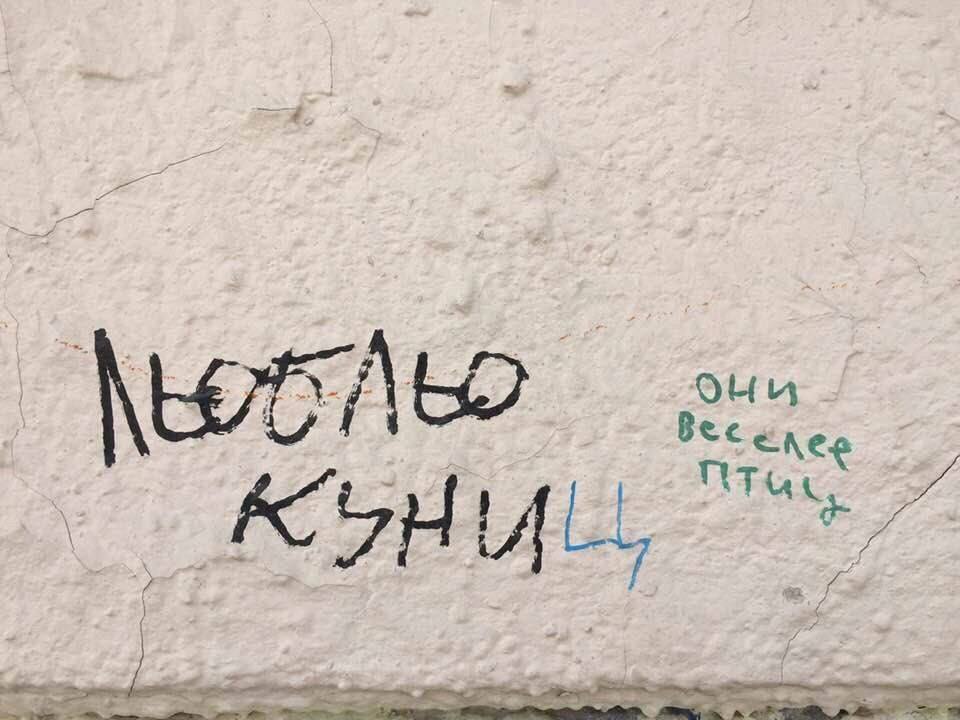 ЛЮБЛЮ
КУНИЦ
ОНИ
Веселее
ПТИЦ